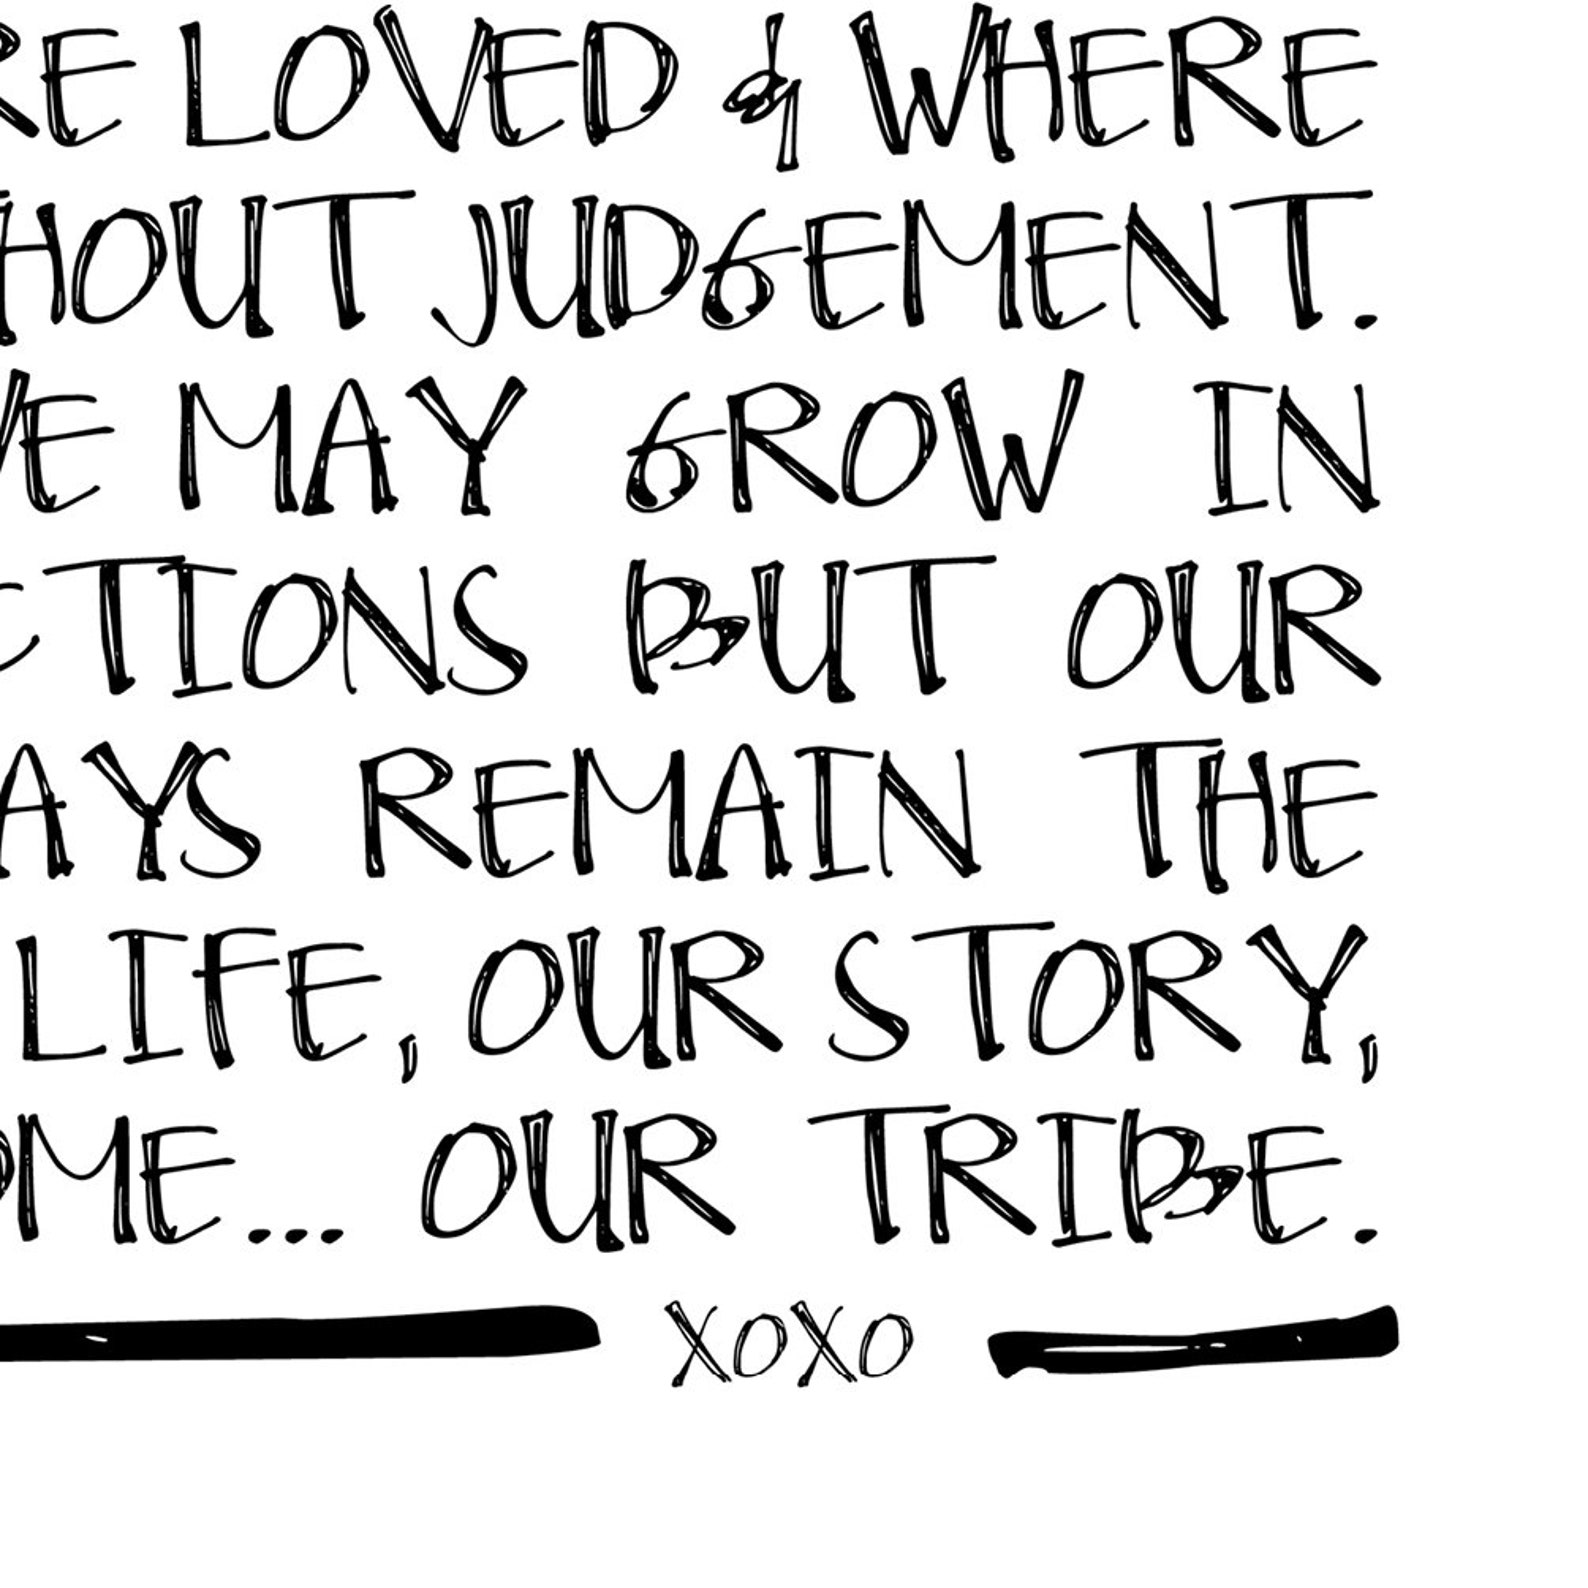 RE LOVED & WHERE
HOUT JUDGEMENT.
VE MAY GROW IN
CTIONS BUT OUR
AYS REMAIN THE
LIFE, OUR STORY,
OME... OUR TRIBE.
XOXO